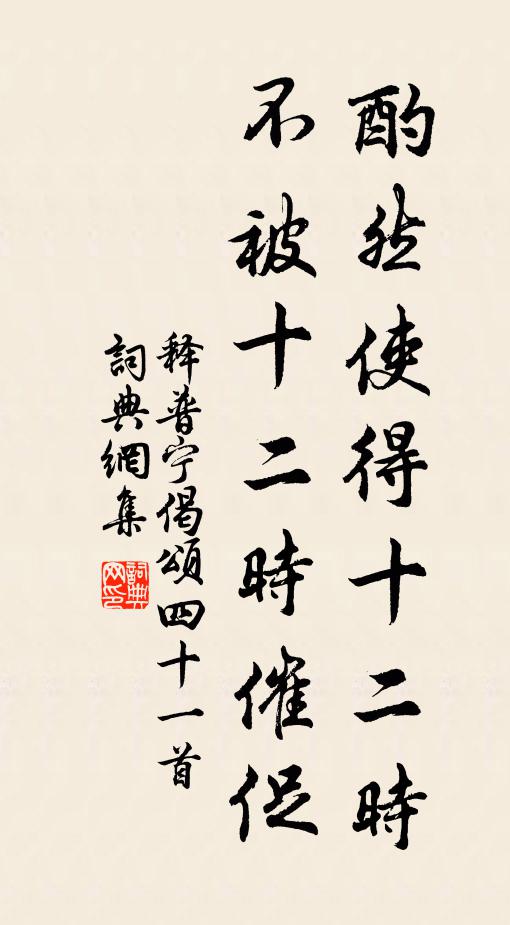 酌然使得十二時
不被十二時催促
释普宁偈頌四十一首
詞典網集
詞典网印